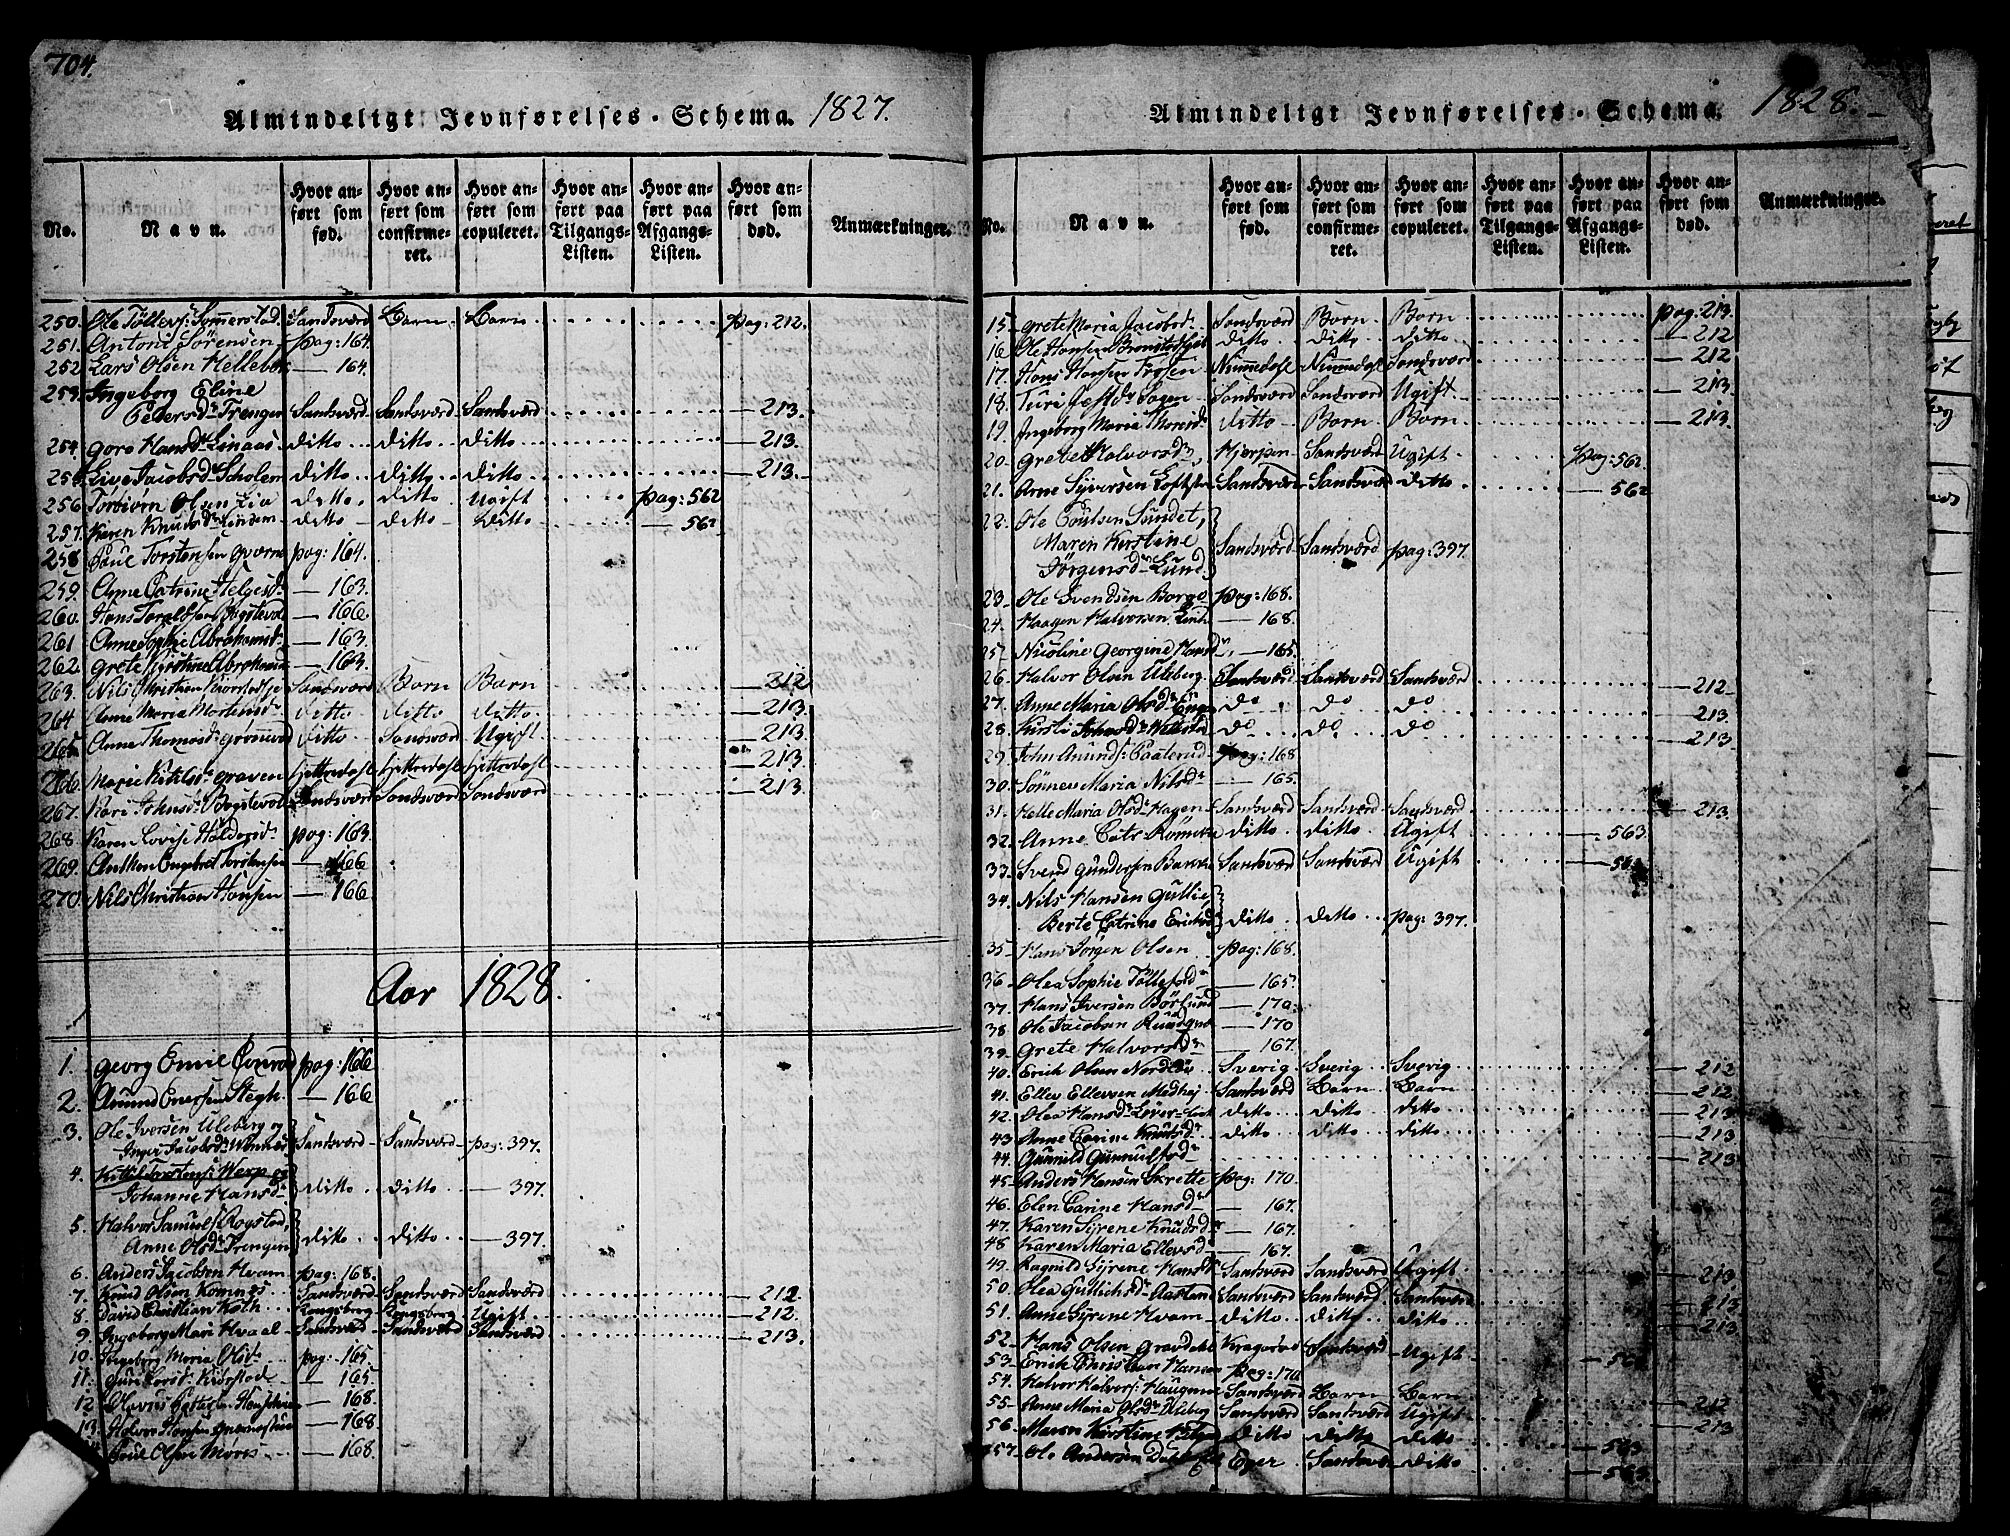 704.
Almindeligt Jevnførelses-Schema. 1827.
No. Navn. Hvor anført som fød. Hvor anført som confirmeret. Hvor anført som copuleret. Hvor anført paa Tilgangs-Listen. Hvor anført paa Afgangs-Listen. Hvor anført som død. Anmærkninger.
250. Ole Sandsværd Barn Barn pag: 212.
251. Antoni Sörensen pag: 164.
252. Lars Olsen — 164.
253. Ingeborg Eline
Pedersdr Trengen Sandsværd Sandsværd Sandsværd — 213.
254. Goro Hansdr ditto ditto ditto — 213.
255. Live Jacobsdr ditto ditto ditto — 213.
256. Torbiörn Olsen Lia ditto ditto Ugift pag: 562
257. Karen Knudsdr ditto ditto ditto — 562
258. Torstensen pag: 164.
259. Anne Catrine Helgesdr — 163.
260. Hans — 166.
261 Anne Sophie Abrahamsd. — 163.
262. Grete Abrahamsd — 163.
263. Nils Christian Sandsværd Barn Barn — 212
264. Anne Maria Mortensd. ditto ditto ditto — 213.
265. Anne Thomasdr ditto Sandsværd Ugift — 213.
266. Marie Ketilsdr Graven Hitterdal Hitterdal Hitterdal — 213.
267. Kari Johnsdr Sandsværd Sandsværd Sandsværd — 213.
268. Karen Lovise pag: 163.
269. Anthon Engebret Torstensen — 166
270. Nils Christian Hansen — 166
Aar 1828.
1. Georg Emil pag: 166
2. Amund — 166
3. Ole Iversen Uleberg og
Inger Jacobsdr Sandsværd Sandsværd pag: 397.
4. Kittil Torstens: og
Johanne Hansdr ditto ditto — 397.
5. Halvor Samuels: Rogstad,
Anne Olsdr Trengen ditto ditto — 397.
6. Anders Jacobsen Hvam pag: 168.
7. Knud Olsen Komnes Sandsværd Sandsværd Sandsværd — 212
8. David Christian Koth Kongsberg Kongsberg Ugift — 212.
9. Ingeborg Mari Sandsværd Sandsværd Sandsværd — 213.
10. Ingeborg Maria Olsdr pag: 165
11. Kiörstad — 165.
12 Olavus — 168
13. Halvor Hansen — 168.
14 Poul Olsen Moros — 168.
Almindeligt Jevnførelses-Schema. 1828.
No. Navn. Hvor anført som fød. Hvor anført som confirmeret. Hvor anført som copuleret. Hvor anført paa Tilgangs-Listen. Hvor anført paa Afgangs-Listen. Hvor anført som død. Anmærkninger.
15. Grete Maria Jacobsd. Sandsværd Barn Barn pag: 213.
16. Ole Hansen ditto ditto ditto — 212
17. Hans Hansen Numedal Numedal Sandsværd — 212.
18. Turi Sandsværd Sandsværd Ugift — 213.
19. Ingeborg Maria ditto Barn Barn — 213.
20. Grete Halvorsdr Hjerpen Sandsværd Ugift pag: 562.
21. Arne Syversen Sandsværd Sandsværd ditto — 562
22. Ole Poulsen Sundet,
Maren Kirstine Sandsværd Sandsværd pag: 397.
Jörgensdr Lund
23. Ole Svendsen Borge pag: 168.
24. Haagen Halvorsen — 168.
25. Nicoline Georgine Hansdr — 165.
26. Halvor Olsen Ulleberg Sandsværd Sandsværd Sandsværd — 212
27. Anne Maria Olsdr do do do — 213.
28. Kirsti do do do — 213
29. John Amunds: pag: 168
30. Sönnev Maria Nilsdr — 165.
31. Helle Maria Olsdr Hagen Sandsværd Sandsværd Sandsværd — 213.
32. Anne Catr ditto ditto Ugift — 563.
33. Svend Gundersen Sandsværd Sandsværd Ugift — 563
34. Nils Hansen Gullie,
Berte Catrine Ericksdr ditto ditto pag: 397.
35. Hans Jörgen Olsen pag: 168.
36. Olea Sophie Tollefsdr — 165.
37. Hans Iversen — 170.
38 Ole Jacobsen — 170
39. Grete Halvorsdr — 167.
40. Erich Olsen Sverig Sverig Sverig — 212
41. Ellev Ellevsen Sandsværd Barn Barn — 212.
42. Olea Hansdr ditto ditto ditto — 213
43. Anne Carine Knudsdr ditto ditto ditto — 213
44. Gunnild Gunnulfsdr — 213.
45. Anders Hansen Skrette pag: 170.
46. Elen Carine Hansdr — 167.
47. Karen Syrene Knudsdr — 167.
48 Karen Maria Ellevsdr — 167.
49. Ragnild Syrene Hansdr Sandsværd Sandsværd Ugift — 213
50. Olea Gullichsdr Sandsværd Sandsværd Sandsværd — 213
51. Anne Syrene Hvam ditto ditto ditto — 213
52. Hans Olsen Gravdahl Sandsværd Ugift
53. Erich Christian Hansen pag: 170.
54. Halvor Halvors: Haugerne Sandsværd Barn Barn — 212
55. Anne Maria Olsdr Ulleberg Sandsværd Sandsværd Ugift — 213
56. Maren Kirstine ditto ditto ditto — 563
57. Ole Andersen Eger Sandsværd ditto — 563.